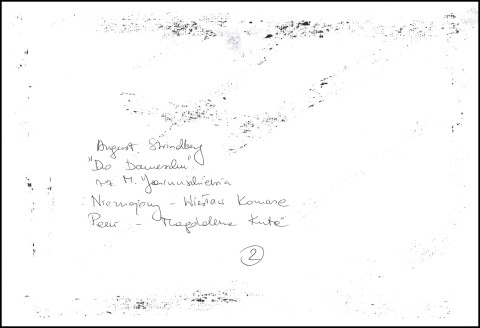 August Strindberg
"Do Damaszku"
reż. M.
Nieznajomy - Wiesław Komasa
Pani - Magdalena Kuta
2